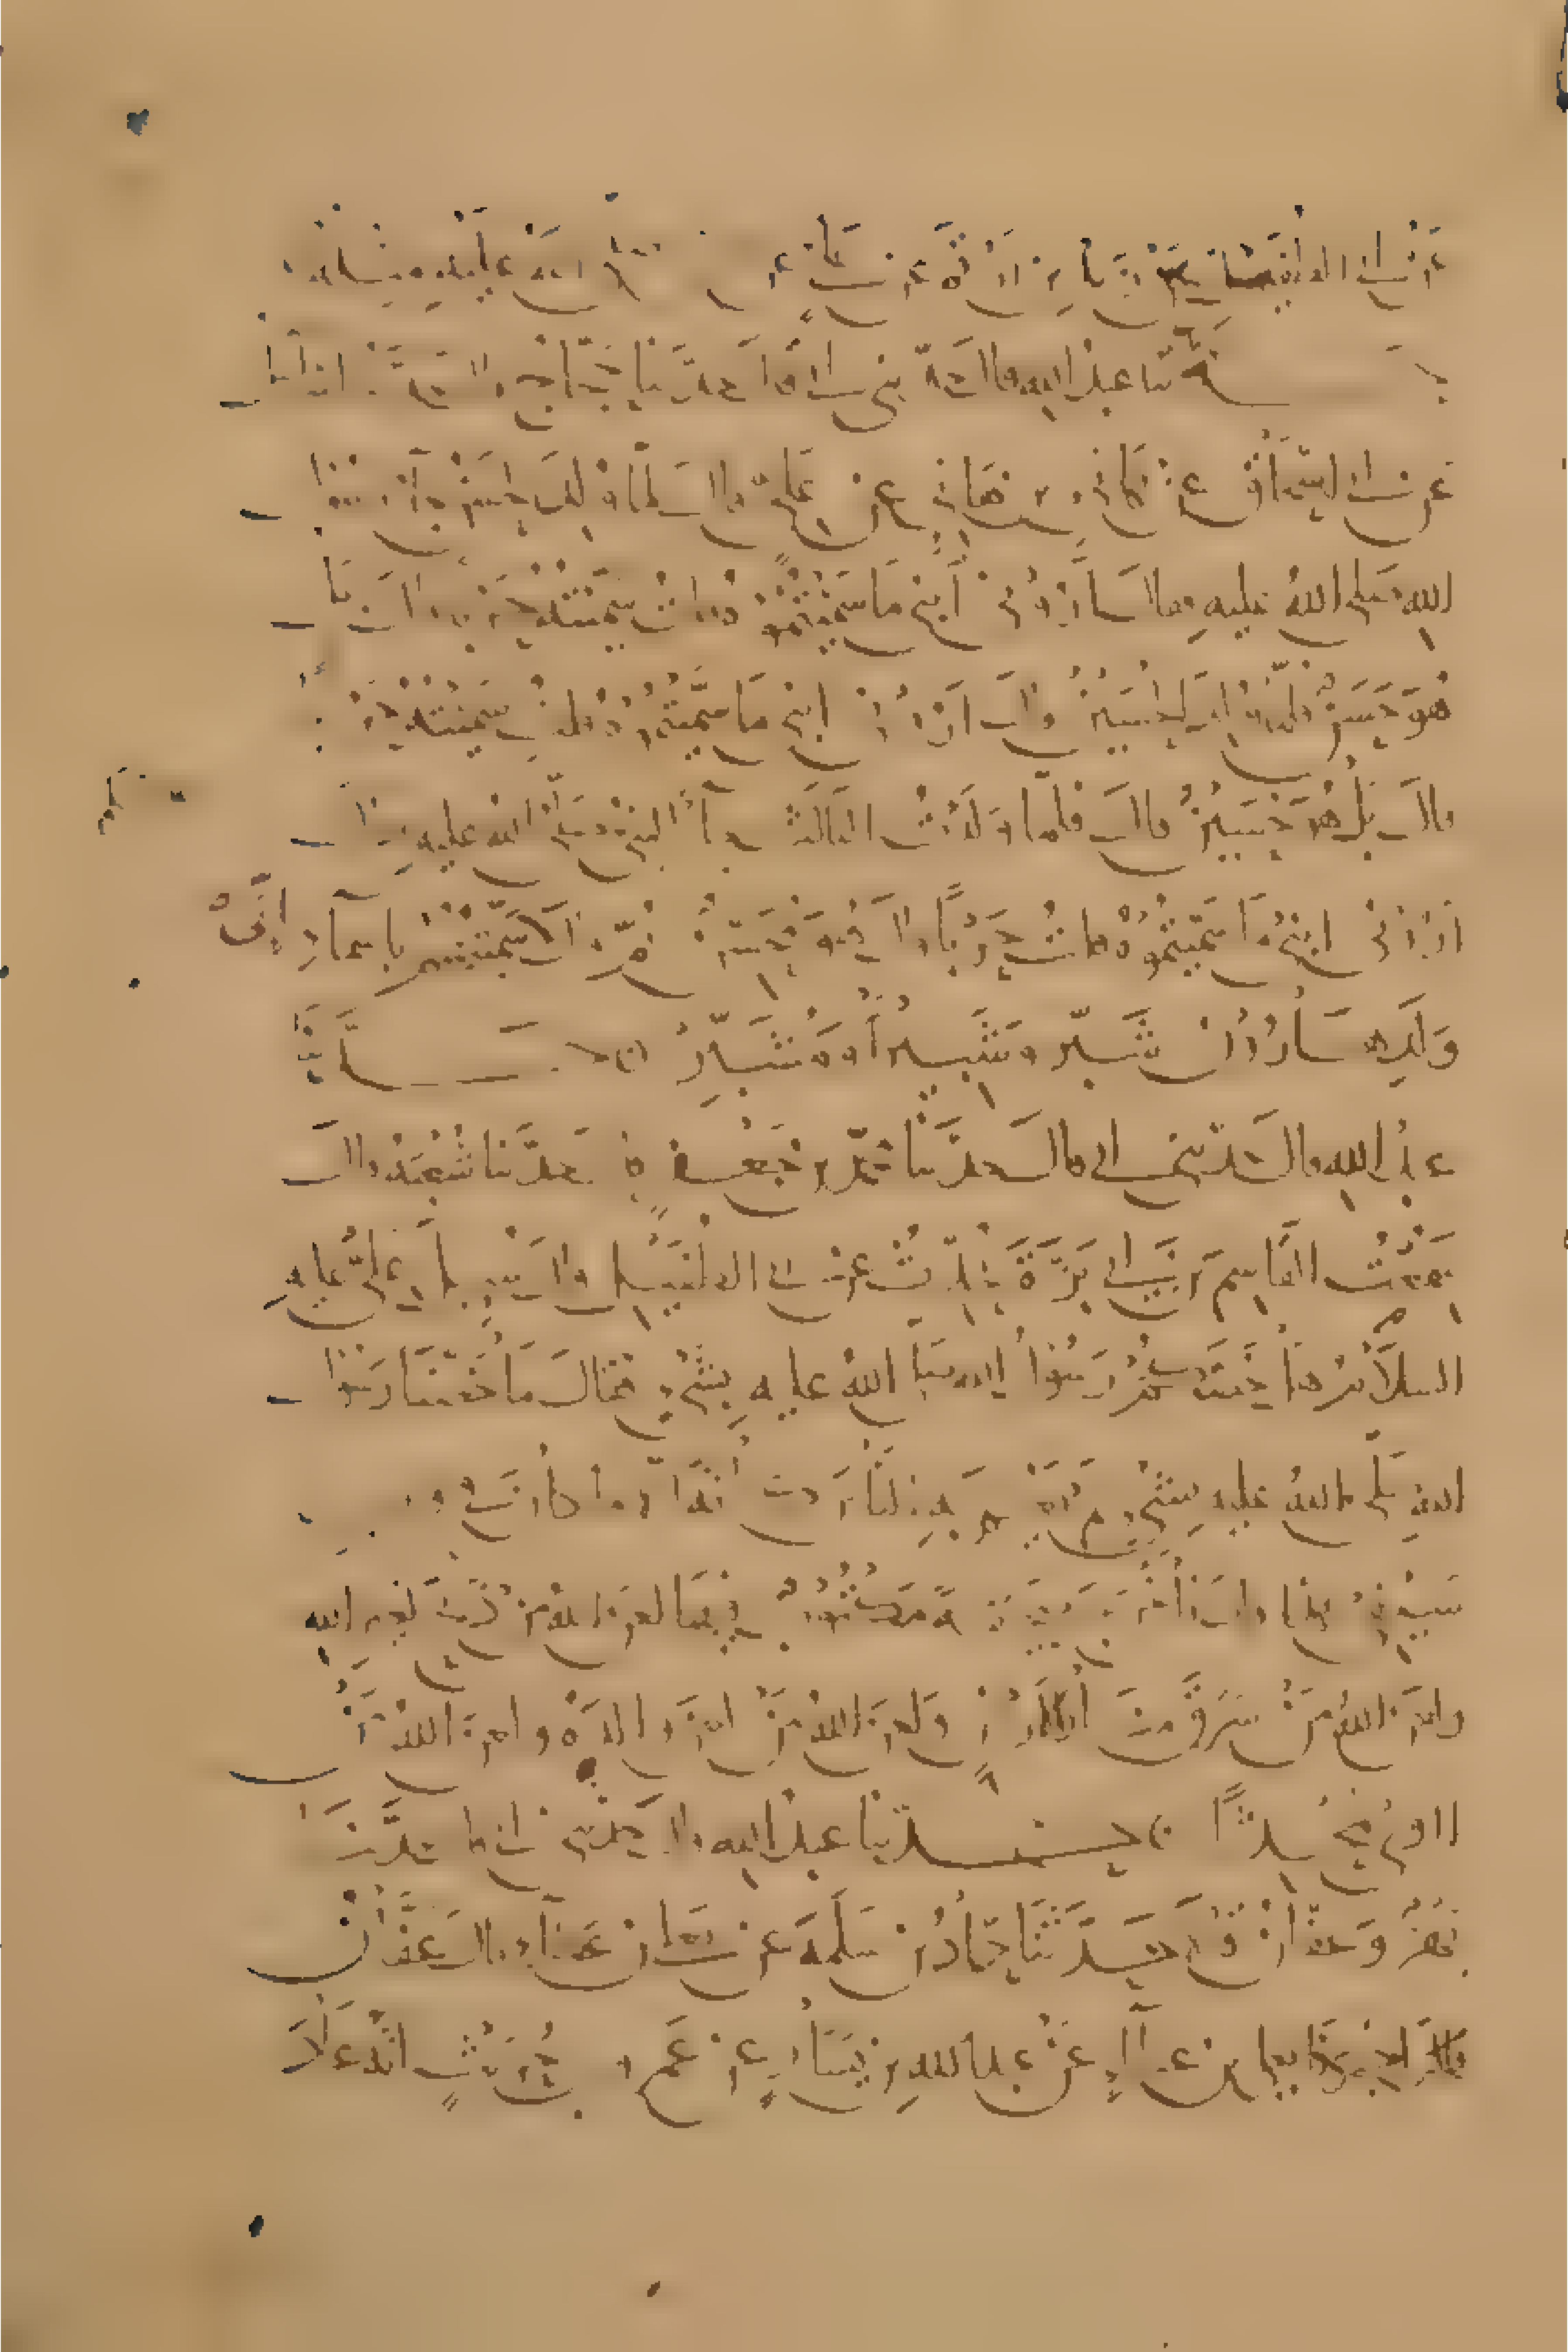 عن ابى الطفيل عن على عن
حدثنا عبد الله قال حدثنى ابى قال حدثنا حجاج قال حدثنا اسرائيل
عن ابى اسحاق عن هانى بن هانى عن على قال لما ولد الحسن جاء رسول
الله صلى الله عليه فقال أرونى ابنى ما سميتموه قلت سميته حربا قال بل
هو حسن فلما ولد الحسين قال أرونى ابنى ما سميتموه قلت سميته حربا
قال بل هو حسين قال فلما ولدت الثالث جاء النبى صلى الله عليه قال
أرونى ابنى ما سميتموه قلت حربا قال هو محسن ثم قال سميتهم باسماء
ولد هارون شبر وشبير ومشبر حدثنا
عبد الله قال حدثنى ابى قال حدثنا محمد بن جعفر حدثنا شعبة قال
سمعت القاسم بن ابى بزة يحدث عن ابى الطفيل قال سئل على عليه
السلام هل خصكم رسول الله صلى الله عليه بشىء فقال ما خصنا رسول
الله صلى الله عليه بشىء لم يعم به الناس كافة الا ما كان فى
سيفى هذا قال فأخرج صحيفة مكتوب فيها لعن الله من ذبح لغير الله
ولعن الله من سرق منار الارض ولعن الله من لعن والده ولعن الله من
اوى محدثا حدثنا عبد الله قال حدثنى ابى حدثنا
بهز وعفان قالا حدثنا حماد بن سلمة عن يعلى بن عطاء قال عفان
قال اخبرنا يعلى بن عطاء عن عبد الله بن يسار عن عمرو بن حريث انه عاد